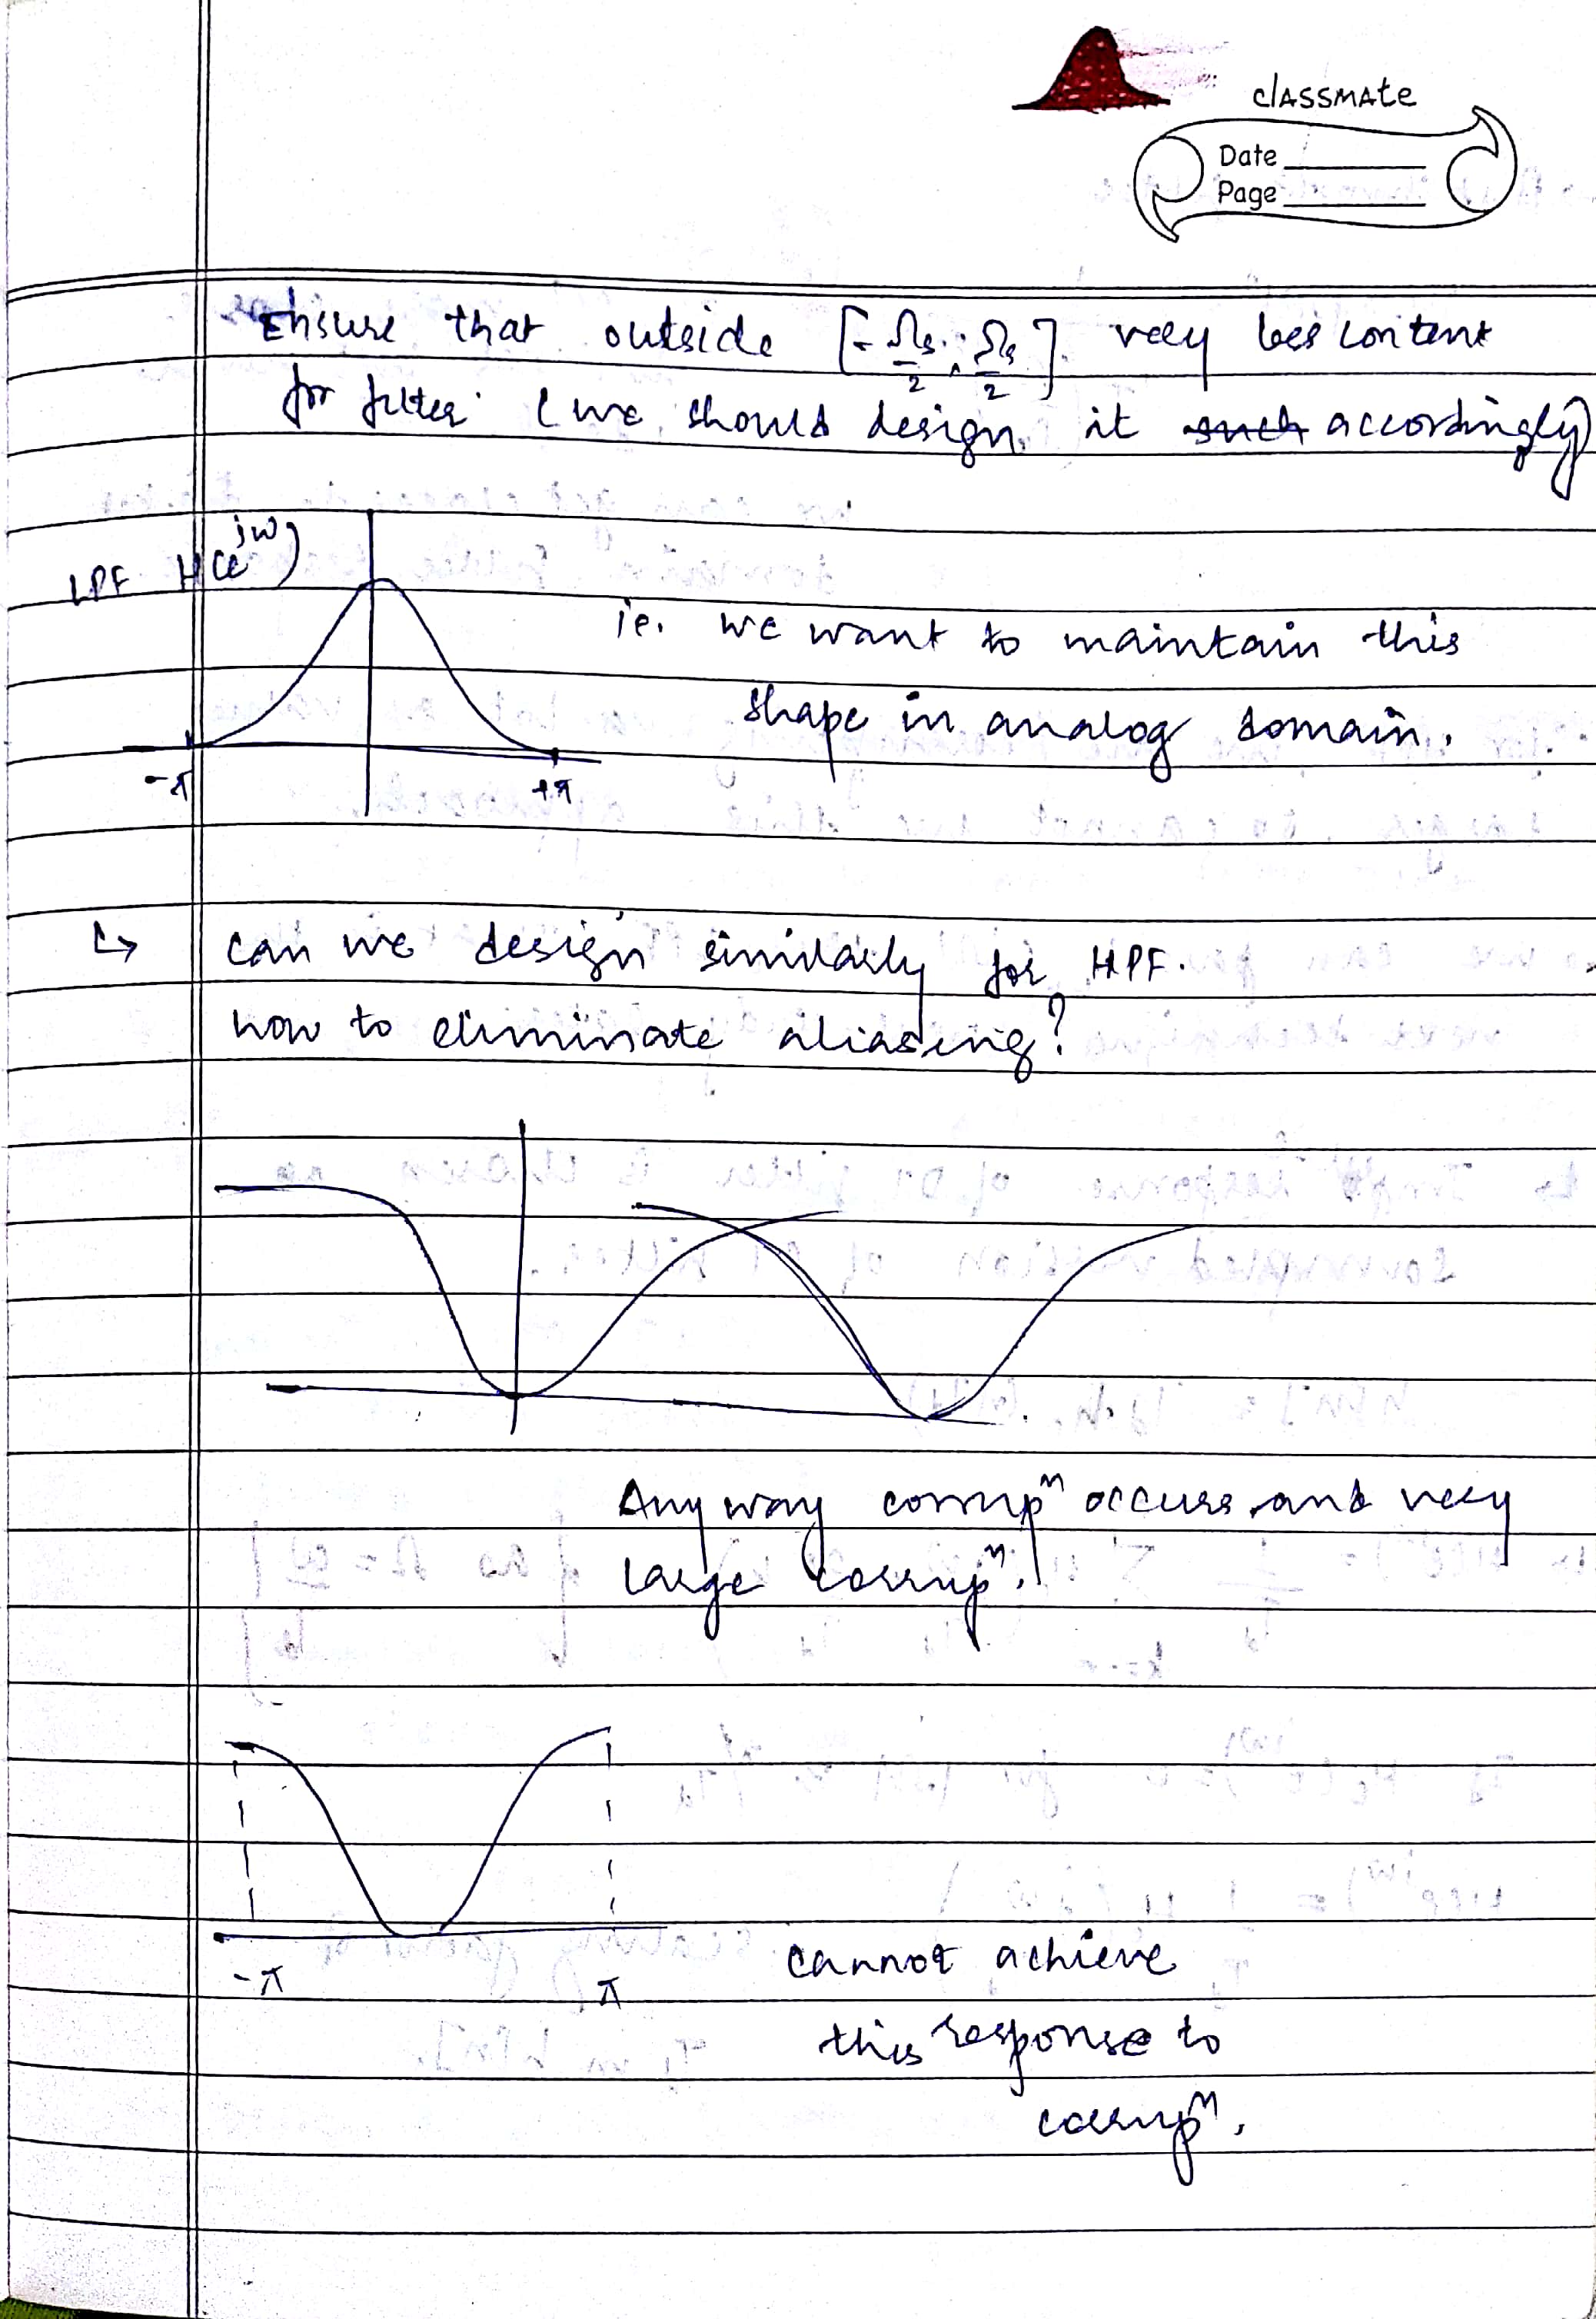 classmate
Date
Page
Ensure that outside [-Ωs/2, Ωs/2] very less content
for filter (we should design it such accordingly)
LPF H(e^jw)
ie. we want to maintain this
shape in analog domain.
-π
+π
↳ can we design similarly for HPF.
how to eliminate aliasing?
Anyway corrupⁿ occurs and very
large corrupⁿ.
-π
π
cannot achieve
this response to
corrupⁿ.